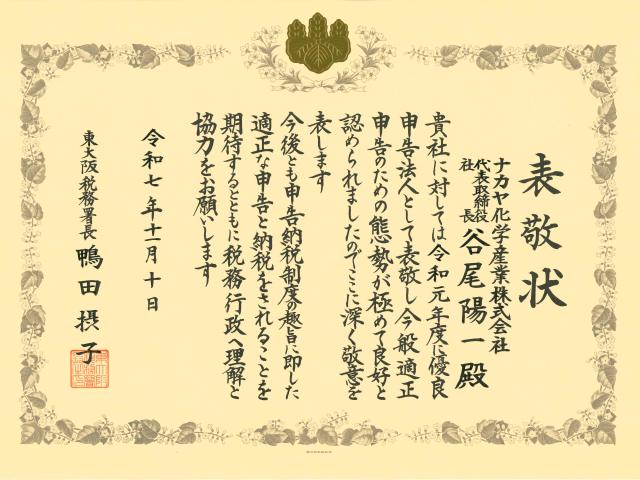 表敬状
ナカヤ化学産業株式会社
代表取締役
社長
谷尾陽一殿
貴社に対しては令和元年度に優良
申告法人として表敬し今般適正
申告のための態勢が極めて良好と
認められましたのでここに深く敬意を
表します
今後とも申告納税制度の趣旨に即した
適正な申告と納税をされることを
期待するとともに税務行政へ理解と
協力をお願いします
令和七年十一月十日
東大阪税務署長
鴨田摂子